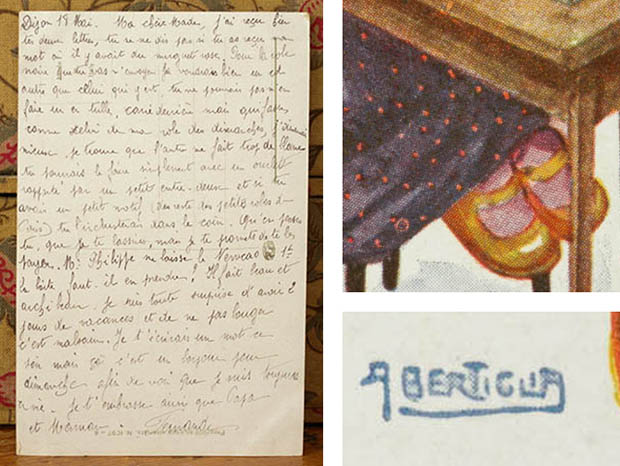 Dijon 18 Mai. Ma chère Mader, j'ai reçu bien
tes deux lettres, tu ne me dis pas si tu as reçu ma
mot où il y avait du muguet rose. Pour la robe
noire que tu vas m'envoyer je voudrais bien un col
autre que celui qui y est. tu ne pourrais pas m'en
faire un en tulle, carré derrière mais qui
comme celui de ma robe des dimanches, j'aimerais
mieux. je trouve que l'autre ne fait trop de blanc
tu pourrais le faire simplement avec un ourlet
rapporté par un petit entre-deux et si tu
avais un petit motif (des restes des petites robes d-
tu l'incrusterais dans le coin. Qu'en penses
tu, que je te laisses, mais je te promets de te les
payer. Mr Philippe me laisse le Nescao 1f
la boîte faut-il en prendre? Il fait beau et
archi beau. Je suis toute surprise d'avoir 2
jours de vacances et de ne pas bouger
c'est malsain. Je t'écrirais un mot ce
soir mais ça c'est un bonjour pour
dimanche afin de voir que je suis toujours
Je t'embrasse ainsi que Papa
et Maman. Fernande
A BERTIGLIA